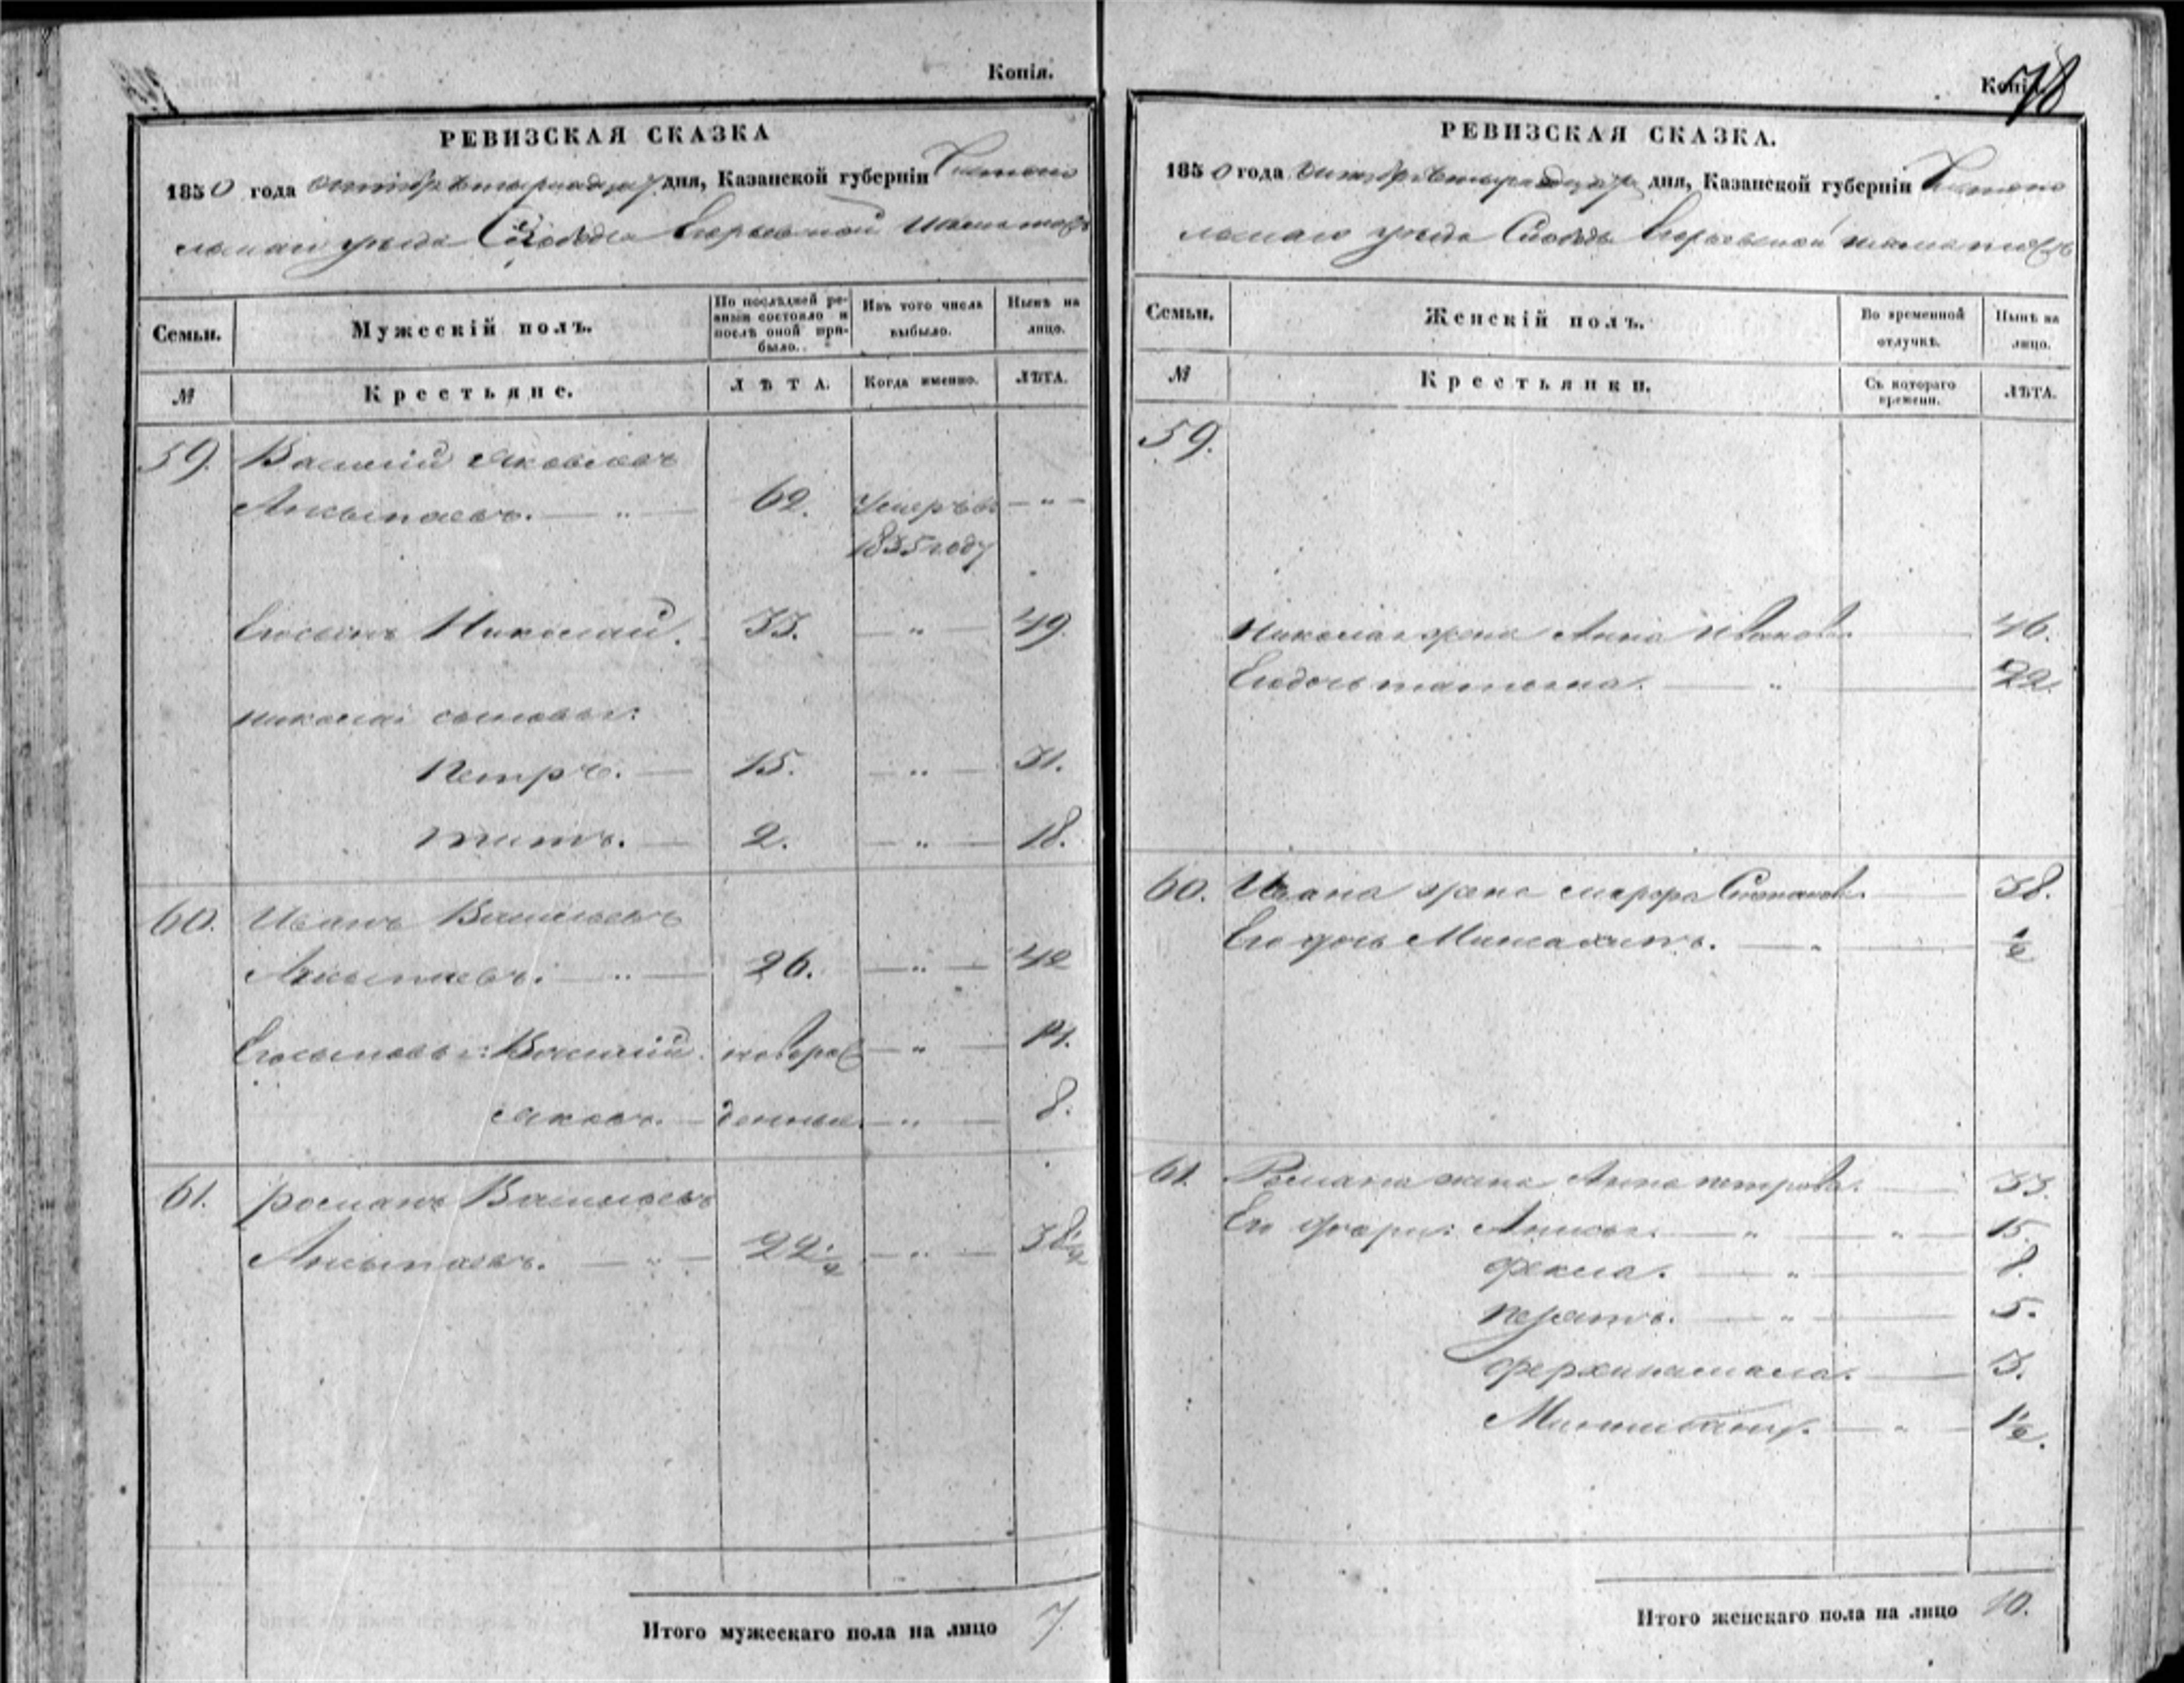 Копія.
РЕВИЗСКАЯ СКАЗКА
1850 года октября дня, Казанской губерніи Чисто
уезда Слободы Егорьевской
Семьи. Мужескій полъ. По последней ревизіи состояло и после оной прибыло. Изъ того числа выбыло. Ныне на лицо.
№ Крестьяне. ЛѢТА. Когда именно. ЛѢТА.
59. Василій Яковлевъ
62. Умеръ въ — " —
1835 году
Его сынъ Николай. 33. — " — 49
Николая сыновья:
Петръ. — 15. — " — 31.
Титъ. — 2. — " — 18.
60. Иванъ Васильевъ
— " — 26. — " — 42
Его сыновья: Василій. новорож — " — 14.
Яковъ. — денные — " — 8.
61. Романъ Васильевъ
— " — 22 1/2 — " — 38 1/2
Итого мужескаго пола на лицо 7
Копія. 78
РЕВИЗСКАЯ СКАЗКА.
1850 года октября дня, Казанской губерніи Чисто
уезда Слободы Егорьевской
Семьи. Женскій полъ. Во временной отлучкѣ. Нынѣ на лицо.
№ Крестьянки. Съ котораго времени. ЛѢТА.
59.
Николая жена Анна Иванова 46.
Его дочь Татьяна. — " — 22.
60. Ивана жена Марфа Степанова. — 38.
Его дочь — " — 1/2
61. Романа жена Анна Петрова. — 33.
Его дочери: — " — " — 15.
Фекла. — " — 8.
— " — 5.
— 3.
— " — 1 1/2.
Итого женскаго пола на лицо 10.